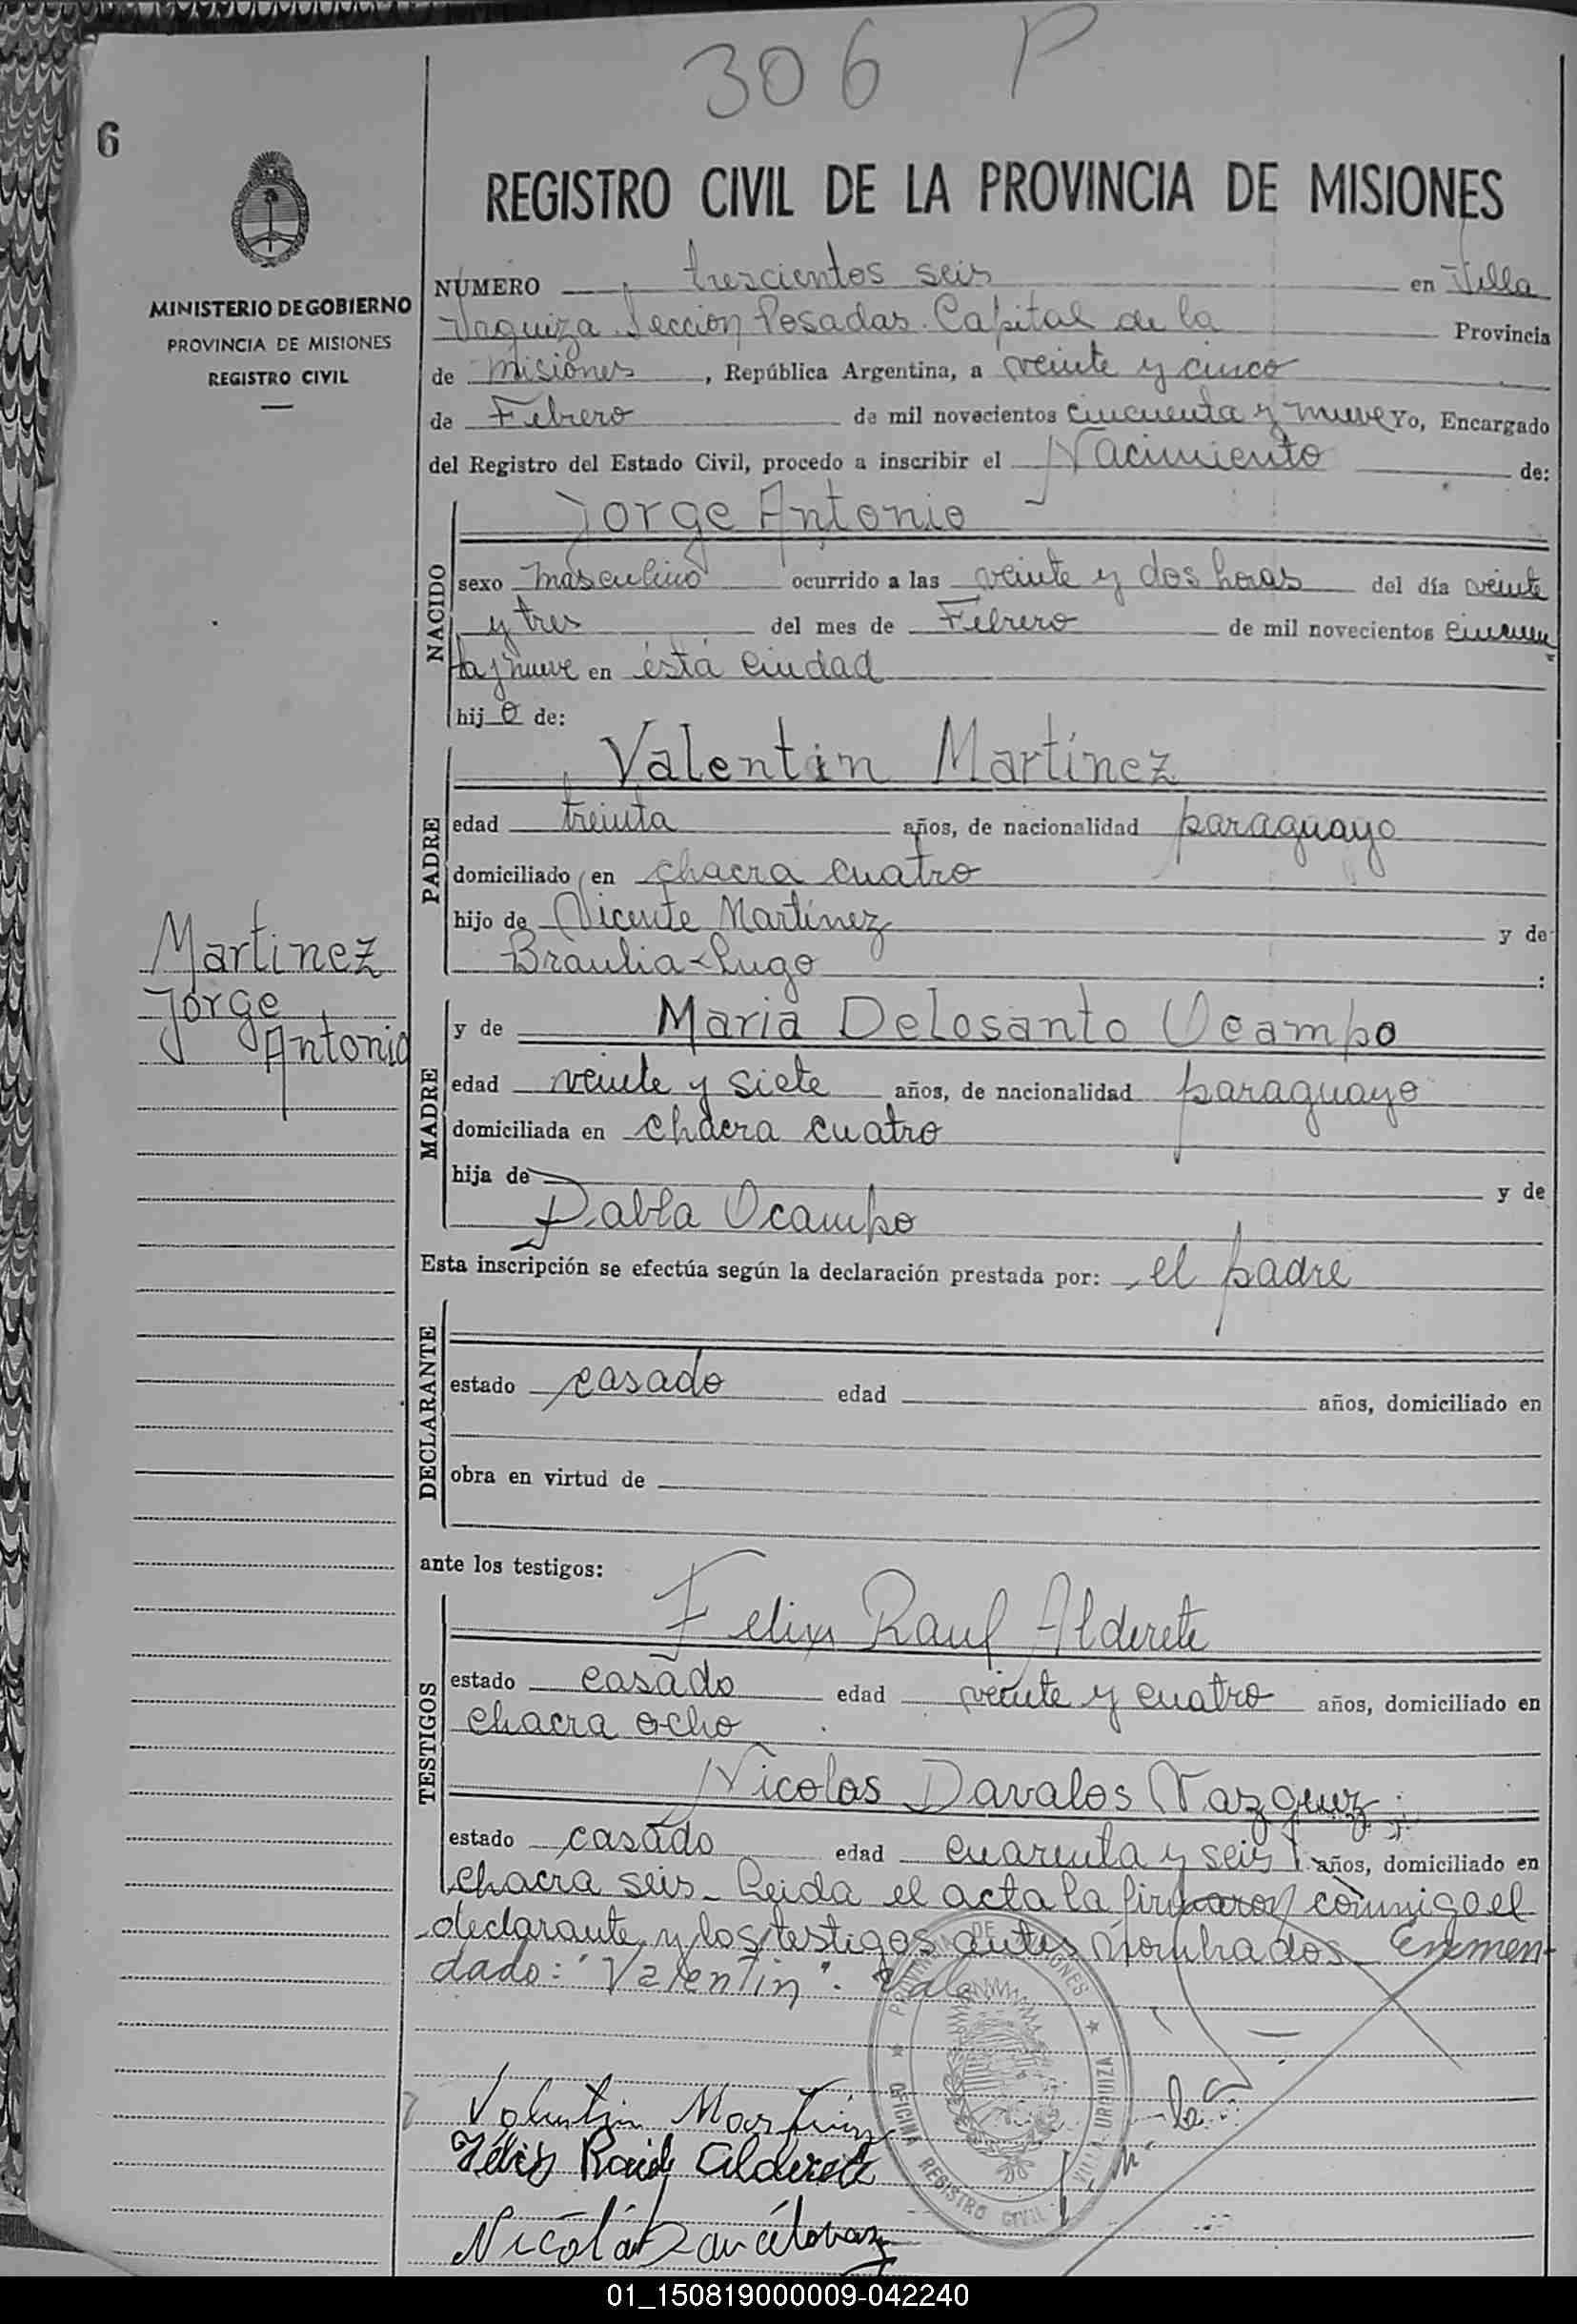 306 P
6
REGISTRO CIVIL DE LA PROVINCIA DE MISIONES
MINISTERIO DE GOBIERNO
PROVINCIA DE MISIONES
REGISTRO CIVIL
NÚMERO trescientos seis en Villa
Urquiza Seccion Posadas. Capital de la Provincia
de Misiones, República Argentina, a veinte y cinco
de Febrero de mil novecientos cincuenta y nueve Yo, Encargado
del Registro del Estado Civil, procedo a inscribir el Nacimiento de:
NACIDO
Jorge Antonio
sexo masculino ocurrido a las veinte y dos horas del día veinte
y tres del mes de Febrero de mil novecientos cincuen
ta y nueve en ésta ciudad
hijo de:
PADRE
Valentin Martínez
edad treinta años, de nacionalidad paraguayo
domiciliado en chacra cuatro
hijo de Vicente Martínez y de
Braulia Lugo :
Martinez
Jorge
Antonio
MADRE
y de Maria Delosanto Ocampo
edad veinte y siete años, de nacionalidad paraguayo
domiciliada en chacra cuatro
hija de y de
Pabla Ocampo
Esta inscripción se efectúa según la declaración prestada por: el padre
DECLARANTE
estado casado edad años, domiciliado en
obra en virtud de
ante los testigos:
TESTIGOS
Felix Raul Alderete
estado casado edad veinte y cuatro años, domiciliado en
chacra ocho
Nicolas Davalos Vazquez
estado casado edad cuarenta y seis años, domiciliado en
chacra seis_ Leida el acta la firmaron conmigo el
declarante y los testigos antes nombrados_ Enmen-
dado: "Valentin". Vale
PROVINCIA DE MISIONES
OFICINA REGISTRO CIVIL
VILLA URQUIZA
Valentin Martinez
Felix Raul Alderete
Nicolás
01_150819000009-042240